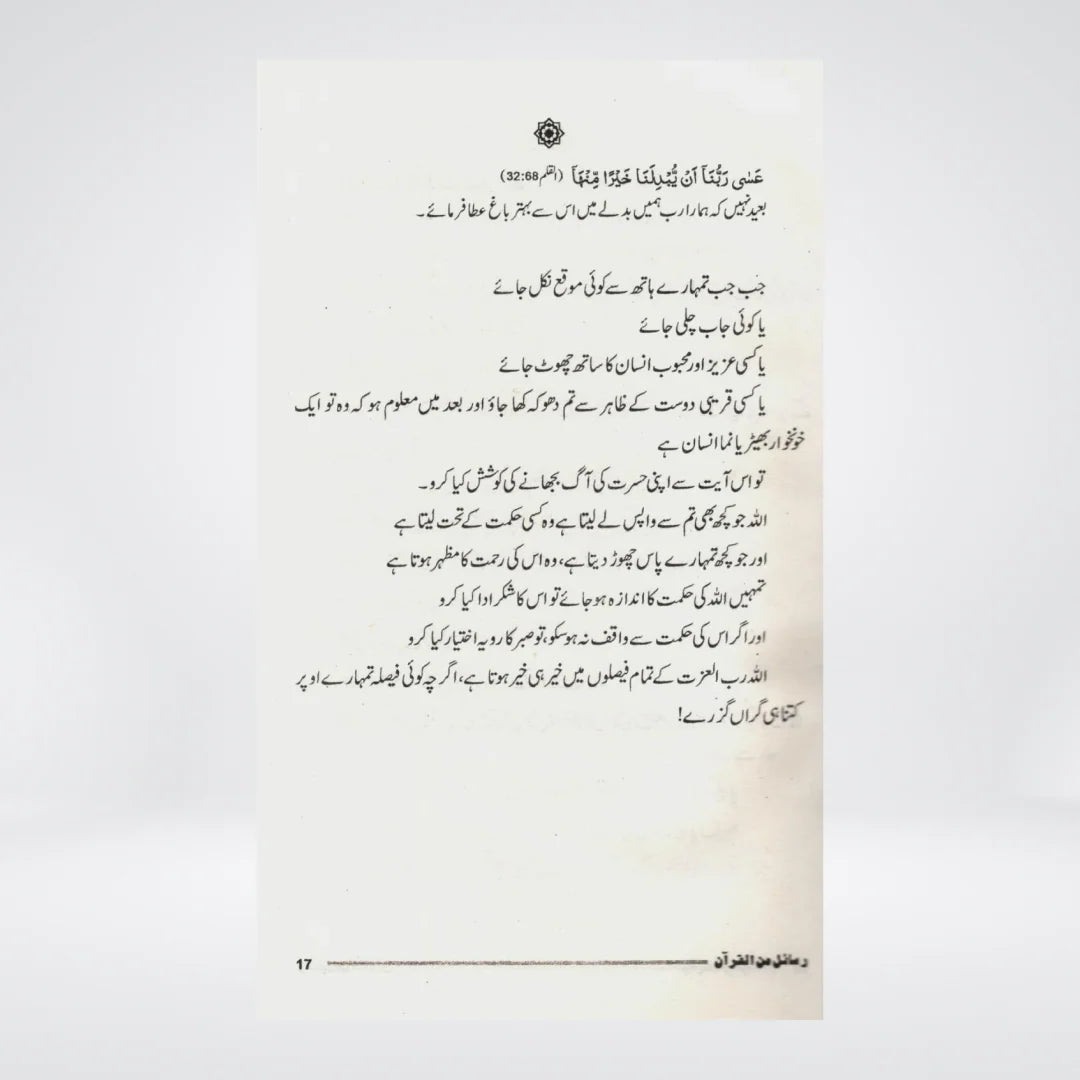 عَسٰى رَبُّنَآ اَنْ يُّبْدِلَنَا خَيْرًا مِّنْهَآ (القلم32:68)
بعید نہیں کہ ہمارا رب ہمیں بدلے میں اس سے بہتر باغ عطا فرمائے۔
جب جب تمہارے ہاتھ سے کوئی موقع نکل جائے
یا کوئی جاب چلی جائے
یا کسی عزیز اور محبوب انسان کا ساتھ چھوٹ جائے
یا کسی قریبی دوست کے ظاہر سے تم دھوکہ کھا جاؤ اور بعد میں معلوم ہو کہ وہ تو ایک
خونخوار بھیڑیا نما انسان ہے
تو اس آیت سے اپنی حسرت کی آگ بجھانے کی کوشش کیا کرو۔
اللہ جو کچھ بھی تم سے واپس لے لیتا ہے وہ کسی حکمت کے تحت لیتا ہے
اور جو کچھ تمہارے پاس چھوڑ دیتا ہے، وہ اس کی رحمت کا مظہر ہوتا ہے
تمہیں اللہ کی حکمت کا اندازہ ہو جائے تو اس کا شکر ادا کیا کرو
اور اگر اس کی حکمت سے واقف نہ ہو سکو، تو صبر کا رویہ اختیار کیا کرو
اللہ رب العزت کے تمام فیصلوں میں خیر ہی خیر ہوتا ہے، اگرچہ کوئی فیصلہ تمہارے اوپر
کتنا ہی گراں گزرے!
رسائل من القرآن 17